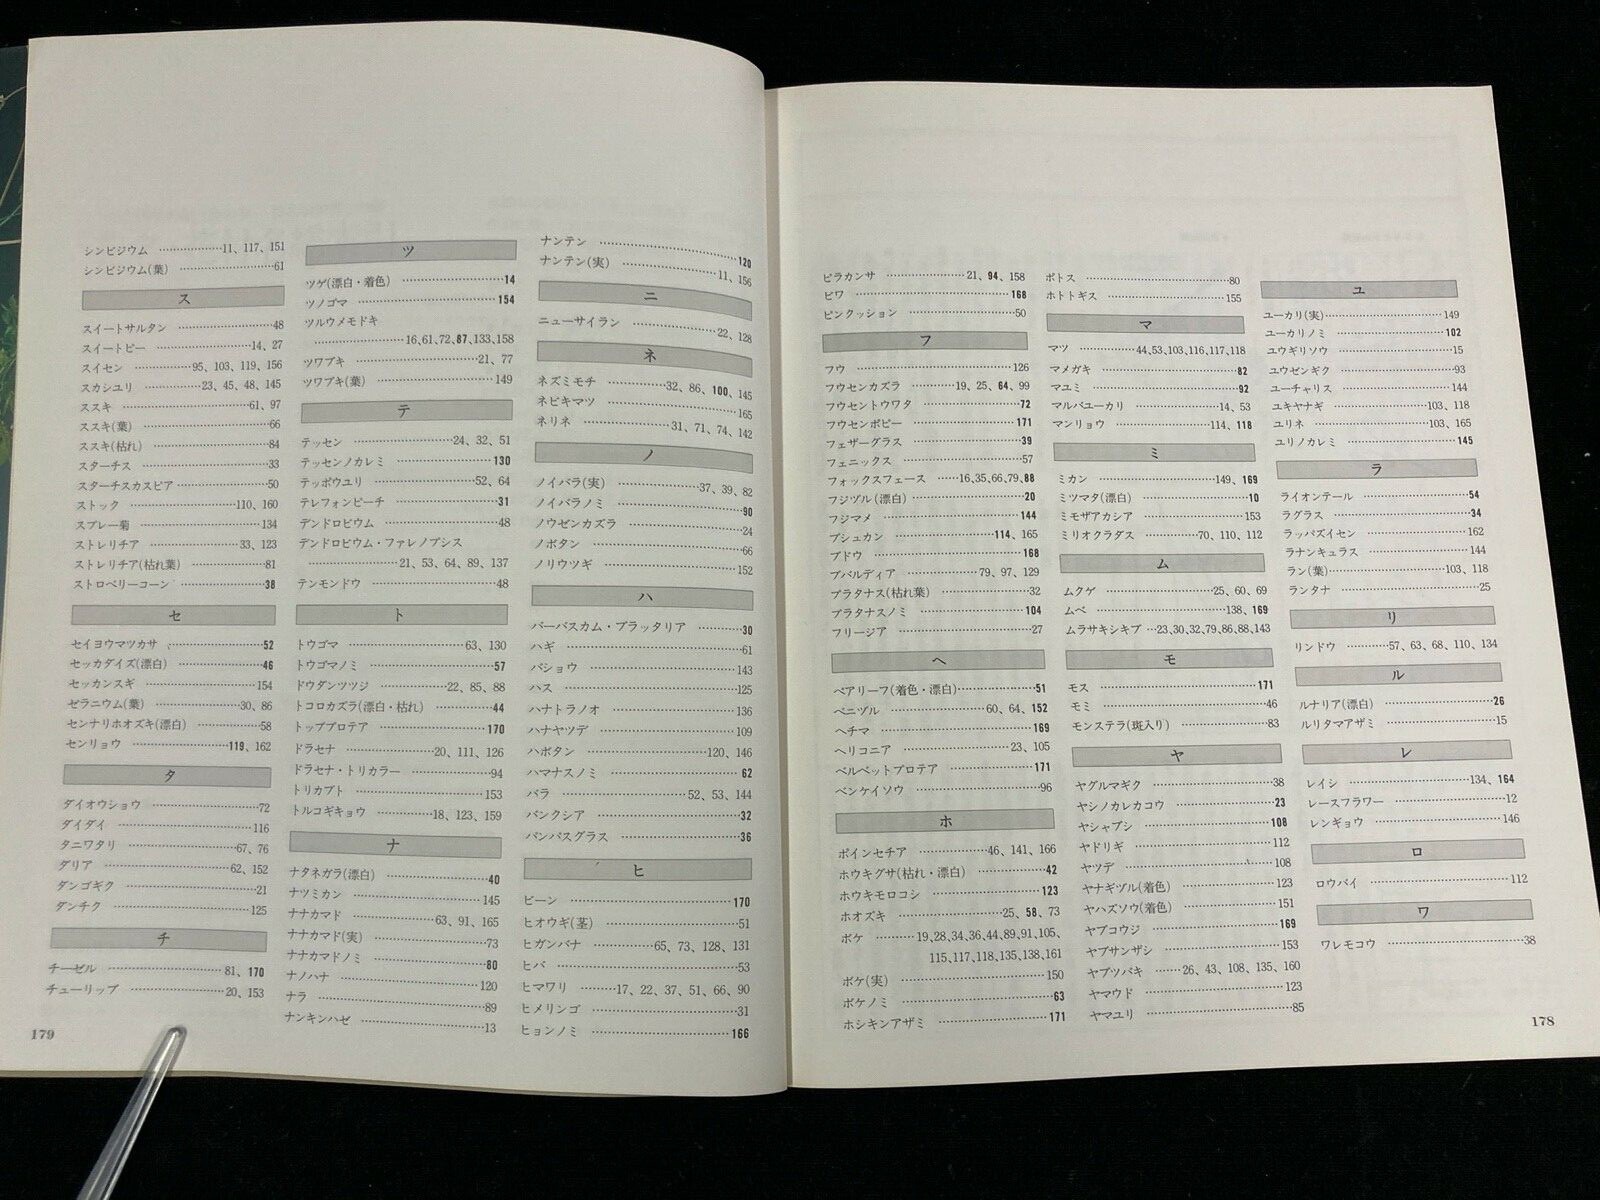 シンビジウム ……………11、117、151
シンビジウム(葉) ……………61
ス
スイートサルタン ……………48
スイートピー ……………14、27
スイセン ……………95、103、119、156
スカシユリ ……………23、45、48、145
ススキ ……………61、97
ススキ(葉) ……………66
ススキ(枯れ) ……………84
スターチス ……………33
スターチスカスピア ……………50
ストック ……………110、160
スプレー菊 ……………134
ストレリチア ……………33、123
ストレリチア(枯れ葉) ……………81
ストロベリーコーン ……………38
セ
セイヨウマツカサ ……………52
セッカダイズ(漂白) ……………46
セッカンスギ ……………154
ゼラニウム(葉) ……………30、86
センナリホオズキ(漂白) ……………58
センリョウ ……………119、162
タ
ダイオウショウ ……………72
ダイダイ ……………116
タニワタリ ……………67、76
ダリア ……………62、152
ダンゴギク ……………21
ダンチク ……………125
チ
チーゼル ……………81、170
チューリップ ……………20、153
179
ツ
ツゲ(漂白・着色) ……………14
ツノゴマ ……………154
ツルウメモドキ
……………16,61,72,87,133,158
ツワブキ ……………21、77
ツワブキ(葉) ……………149
テ
テッセン ……………24、32、51
テッセンノカレミ ……………130
テッポウユリ ……………52、64
テレフォンピーチ ……………31
デンドロビウム ……………48
デンドロビウム・ファレノプシス
……………21、53、64、89、137
テンモンドウ ……………48
ト
トウゴマ ……………63、130
トウゴマノミ ……………57
ドウダンツツジ ……………22、85、88
トコロカズラ(漂白・枯れ) ……………44
トッププロテア ……………170
ドラセナ ……………20、111、126
ドラセナ・トリカラー ……………94
トリカブト ……………153
トルコギキョウ ……………18、123、159
ナ
ナタネガラ(漂白) ……………40
ナツミカン ……………145
ナナカマド ……………63、91、165
ナナカマド(実) ……………73
ナナカマドノミ ……………80
ナノハナ ……………120
ナラ ……………89
ナンキンハゼ ……………13
ナンテン ……………120
ナンテン(実) ……………11、156
ニ
ニューサイラン ……………22、128
ネ
ネズミモチ ……………32、86、100、145
ネビキマツ ……………165
ネリネ ……………31、71、74、142
ノ
ノイバラ(実) ……………37、39、82
ノイバラノミ ……………90
ノウゼンカズラ ……………24
ノボタン ……………66
ノリウツギ ……………152
ハ
バーバスカム・ブラッタリア ……………30
ハギ ……………61
バショウ ……………143
ハス ……………125
ハナトラノオ ……………136
ハナヤツデ ……………109
ハボタン ……………120、146
ハマナスノミ ……………62
バラ ……………52、53、144
バンクシア ……………32
パンパスグラス ……………36
ヒ
ビーン ……………170
ヒオウギ(茎) ……………51
ヒガンバナ ……………65、73、128、131
ヒバ ……………53
ヒマワリ ……………17、22、37、51、66、90
ヒメリンゴ ……………31
ヒョンノミ ……………166
ピラカンサ ……………21、94、158
ビワ ……………168
ピンクッション ……………50
フ
フウ ……………126
フウセンカズラ ……………19、25、64、99
フウセントウワタ ……………72
フウセンポピー ……………171
フェザーグラス ……………39
フェニックス ……………57
フォックスフェース ……………16,35,66,79,88
フジヅル(漂白) ……………20
フジマメ ……………144
ブシュカン ……………114、165
ブドウ ……………168
ブバルディア ……………79、97、129
プラタナス(枯れ葉) ……………32
プラタナスノミ ……………104
フリージア ……………27
ヘ
ベアリーフ(着色・漂白) ……………51
ベニヅル ……………60、64、152
ヘチマ ……………169
ヘリコニア ……………23、105
ベルベットプロテア ……………171
ベンケイソウ ……………96
ホ
ポインセチア ……………46、141、166
ホウキグサ(枯れ・漂白) ……………42
ホウキモロコシ ……………123
ホオズキ ……………25、58、73
ボケ ……………19,28,34,36,44,89,91,105、
115,117,118,135,138,161
ボケ(実) ……………150
ボケノミ ……………63
ホシキンアザミ ……………171
ポトス ……………80
ホトトギス ……………155
マ
マツ ……………44,53,103,116,117,118
マメガキ ……………82
マユミ ……………92
マルバユーカリ ……………14、53
マンリョウ ……………114、118
ミ
ミカン ……………149、169
ミツマタ(漂白) ……………10
ミモザアカシア ……………153
ミリオクラダス ……………70、110、112
ム
ムクゲ ……………25、60、69
ムベ ……………138、169
ムラサキシキブ …23,30,32,79,86,88,143
モ
モス ……………171
モミ ……………46
モンステラ(斑入り) ……………83
ヤ
ヤグルマギク ……………38
ヤシノカレカコウ ……………23
ヤシャブシ ……………108
ヤドリギ ……………112
ヤツデ ……………108
ヤナギヅル(着色) ……………123
ヤハズソウ(着色) ……………151
ヤブコウジ ……………169
ヤブサンザシ ……………153
ヤブツバキ ……26、43、108、135、160
ヤマウド ……………123
ヤマユリ ……………85
ユ
ユーカリ(実) ……………149
ユーカリノミ ……………102
ユウギリソウ ……………15
ユウゼンギク ……………93
ユーチャリス ……………144
ユキヤナギ ……………103、118
ユリネ ……………103、165
ユリノカレミ ……………145
ラ
ライオンテール ……………54
ラグラス ……………34
ラッパズイセン ……………162
ラナンキュラス ……………144
ラン(葉) ……………103、118
ランタナ ……………25
リ
リンドウ ……………57、63、68、110、134
ル
ルナリア(漂白) ……………26
ルリタマアザミ ……………15
レ
レイシ ……………134、164
レースフラワー ……………12
レンギョウ ……………146
ロ
ロウバイ ……………112
ワ
ワレモコウ ……………38
178